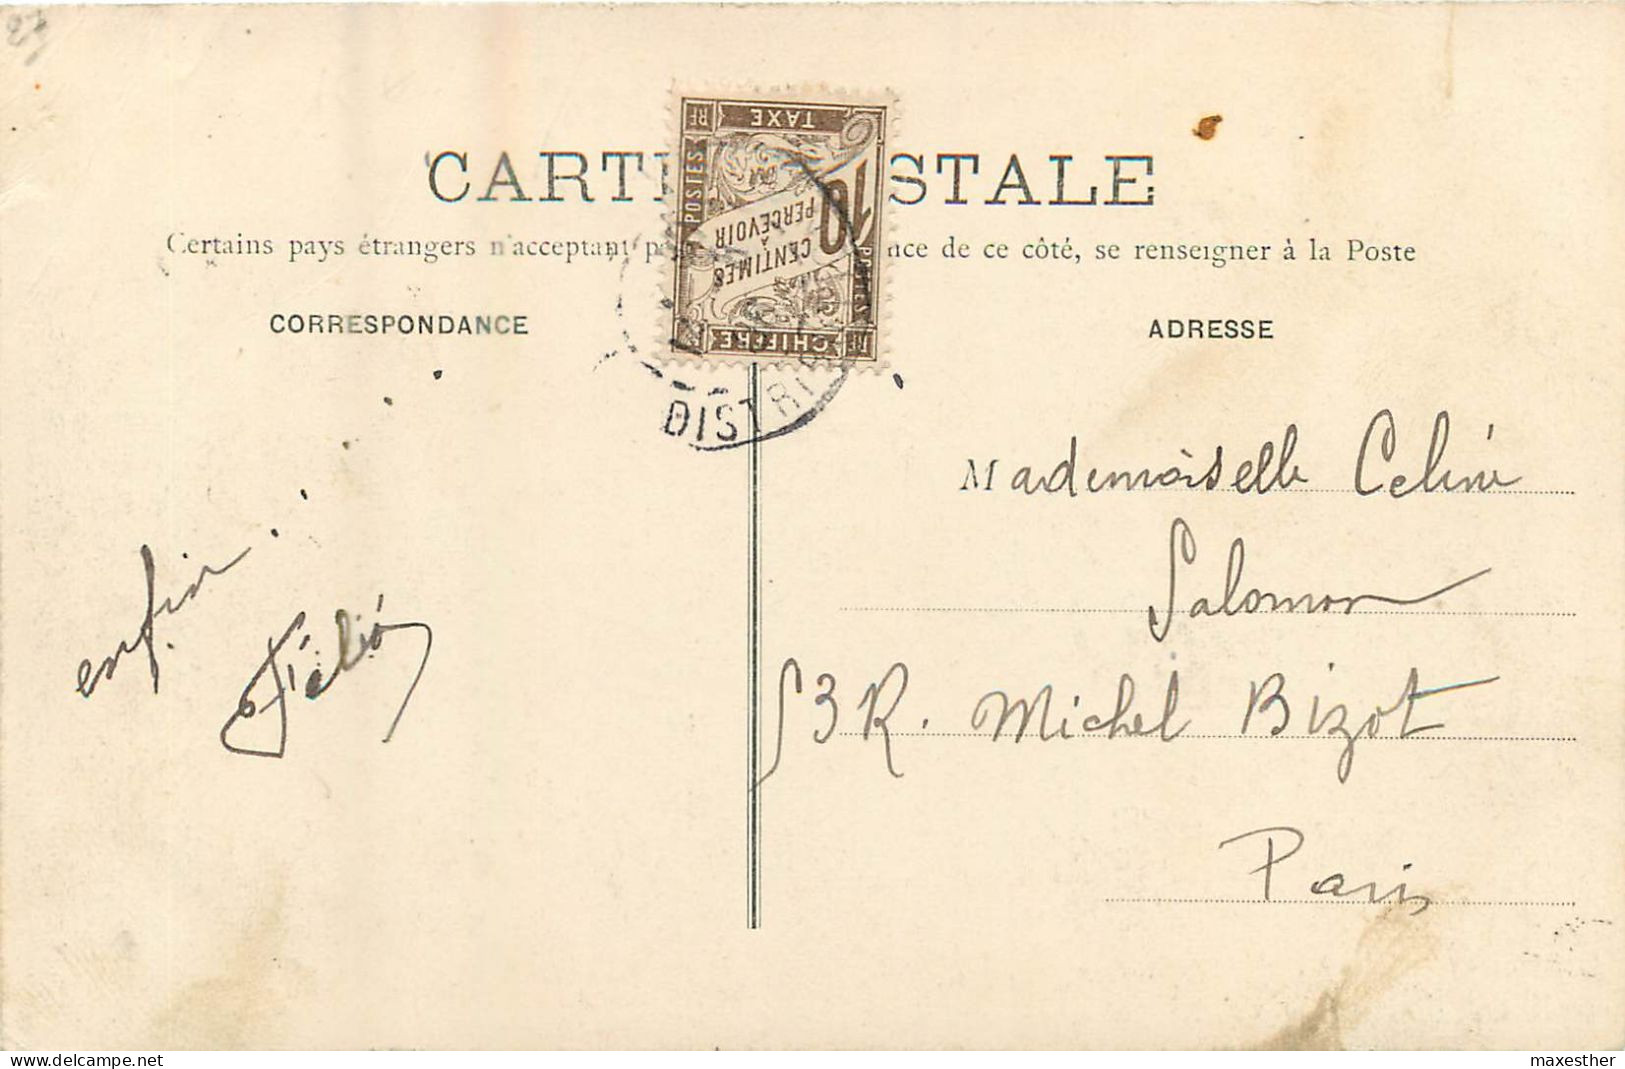 CARTE POSTALE
Certains pays étrangers n'acceptant p nce de ce côté, se renseigner à la Poste
CORRESPONDANCE
ADRESSE
RF TAXE RF
POSTES
10
CENTIMES
À
PERCEVOIR
POSTES
RF CHIFFRE RF
DISTRIB
enfin . . . . . . .
Félio
Mademoiselle Celine
Salomon
53 R. Michel Bizot
Paris
www.delcampe.net
maxesther